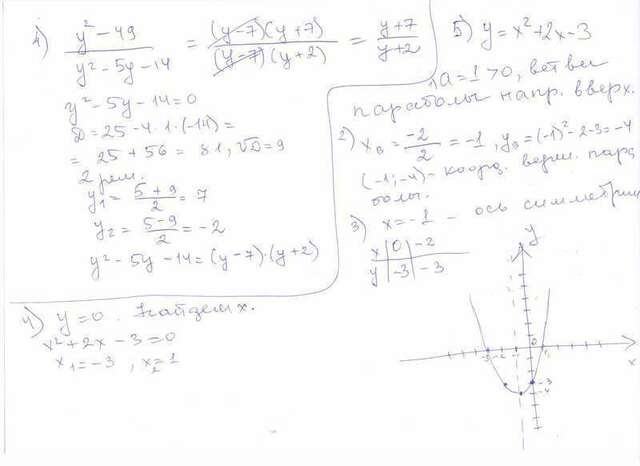 4) (y² - 49)/(y² - 5y - 14) = ((y-7)(y+7))/((y-7)(y+2)) = (y+7)/(y+2)
y² - 5y - 14 = 0
D = 25 - 4·1·(-14) =
= 25 + 56 = 81, √D = 9
2 реш.
y₁ = (5+9)/2 = 7
y₂ = (5-9)/2 = -2
y² - 5y - 14 = (y-7)·(y+2)
5) y = x² + 2x - 3
1 a = 1 > 0, ветви
параболы напр. вверх.
2) xв = -2/2 = -1, yв = (-1)² - 2 - 3 = -4
(-1; -4) - коорд. верш. пара
болы.
3) x = -1 - ось симметрии
x | 0 | -2
y | -3 | -3
4) y = 0. Найдем x.
x² + 2x - 3 = 0
x₁ = -3, x₂ = 1
y
-3 -2 0 1
x
-3
-4